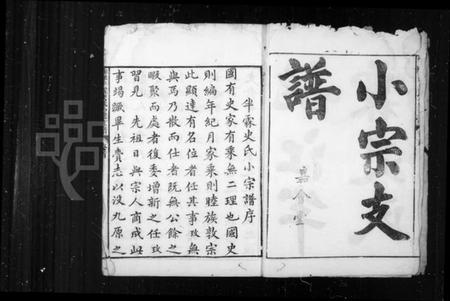 小宗支
譜
嘉會堂
半霖史氏小宗譜序
國有史家有乘無二理也國史
則編年紀月家乘則睦族敦宗
此顯達有名位者任其事故無
與焉乃散而仕者既無公餘之
暇聚而處者復委增新之任攷
習見　先祖日與宗人商成此
事竭誠畢生賫志以沒九原之